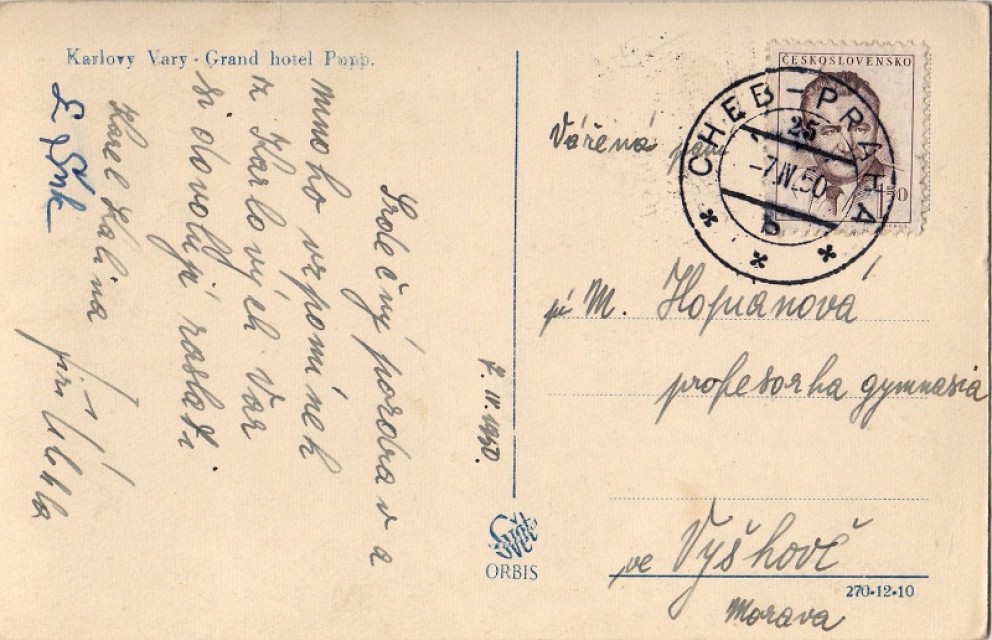 Karlovy Vary - Grand hotel Pupp.
Srdečný pozdrav a
mnoho vzpomínek
z Karlových Var
si dovolují zaslati
Karel Kalina
Jiří
7. IV. 1950.
Svět
ORBIS
ČESKOSLOVENSKO
1,50
CHEB-PRAHA
25
-7.IV.50
b
Vážená paní
pí M. Hofmanová
profesorka gymnasia
ve Vyškově
270-12-10
Morava